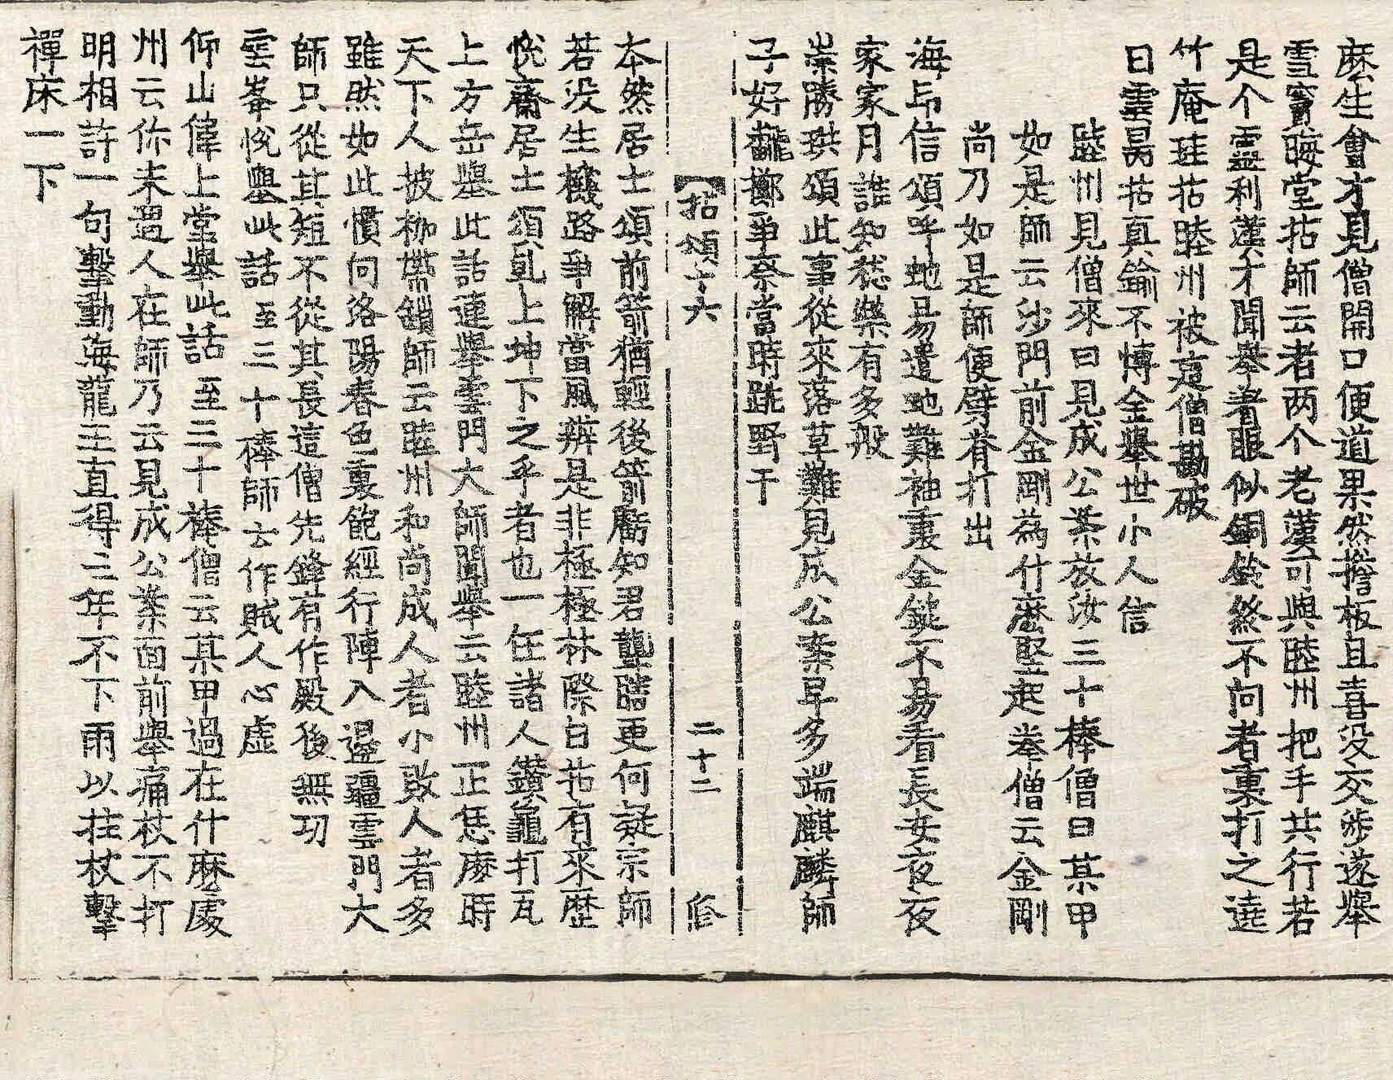 麽生會才見僧開口便道果然擔板且喜沒交涉遂舉
雪竇晦堂拈師云者两个老漢可與睦州把手共行若
是个靈利漢才聞舉著眼似銅鈴終不向者裏打之遶
竹庵珪拈睦州被這僧勘破
日雲昺拈真鍮不博金舉世小人信
睦州見僧來曰見成公案放汝三十棒僧曰某甲
如是師云沙門前金剛為什麽竪起拳僧云金剛
尚乃如是師便劈脊打出
海印信頌呼蛇易遣蛇難袖裏金鎚不易看長安夜夜
家家月誰知愁樂有多般
崇勝珙頌此事從來落草難見成公案早多端麒麟師
子好𪘏擲爭奈當時跳野干
拈頌十六 二十二
本然居士頌前箭猶輕後箭深知君聾瞎更何疑宗師
若沒生機路爭解當風辨是非極極林際白拈有來歷
悅齋居士頌乹上坤下之乎者也一任諸人鑽龜打瓦
上方岳舉此話連舉雲門大師聞舉云睦州正恁麽時
天下人披枷帶鎖師云睦州和尚成人者小敗人者多
雖然如此慣向洛陽春色裏飽經行陣入邊疆雲門大
師只從其短不從其長這僧先鋒有作殿後無功
雲峯悅舉此話至三十棒師云作賊人心虛
仰山偉上堂舉此話至三十棒僧云某甲過在什麽處
州云你未遇人在師乃云見成公案面前舉痛杖不打
明相許一句擊動海龍王直得三年不下雨以拄杖擊
禪床一下